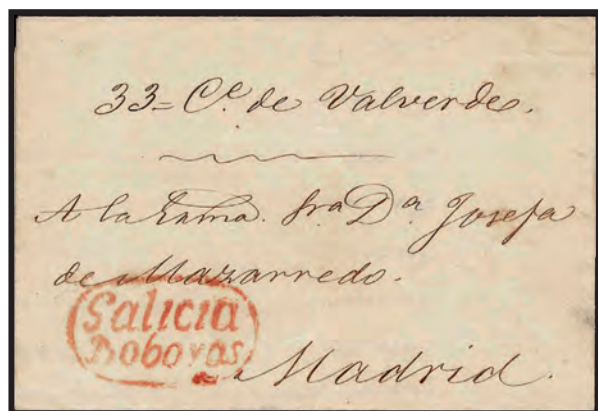 33= Ce. de Valverde.
A la Exma. Sra Da. Josefa
de Mazarredo.
Galicia
Boboras
Madrid.